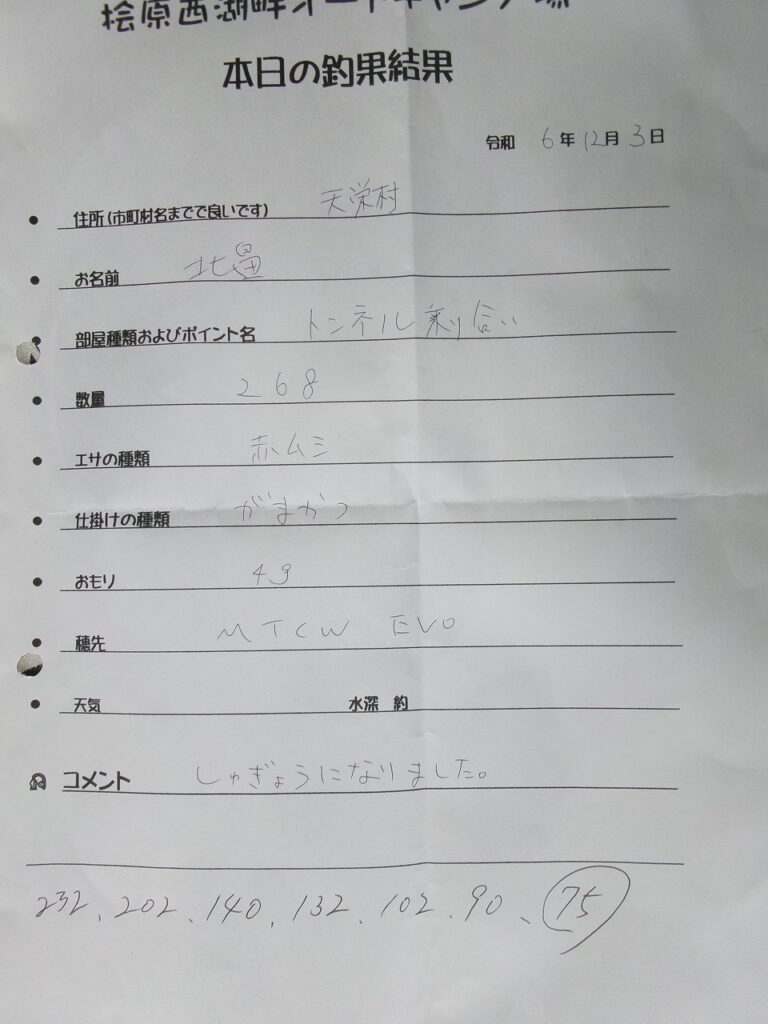 桧原西湖畔オートキャンプ場
本日の釣果結果
令和 6年 12月 3日
● 住所(市町村名までで良いです) 天栄村
● お名前 北畠
● 部屋種類およびポイント名 トンネル乗り合い
● 数量 268
● エサの種類 赤ムシ
● 仕掛けの種類 がまかつ
● おもり 4g
● 穂先 MTCW EVO
● 天気 水深 約
コメント しゅぎょうになりました。
232、202、140、132、102、90、75